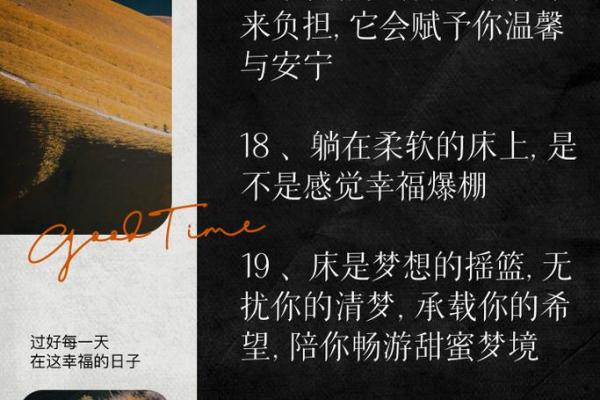 来负担, 它会赋予你温馨
与安宁
18 、躺在柔软的床上, 是
不是感觉幸福爆棚
19 、床是梦想的摇篮, 无
扰你的清梦, 承载你的希
望, 陪你畅游甜蜜梦境
Good Time
过好每一天
在这幸福的日子